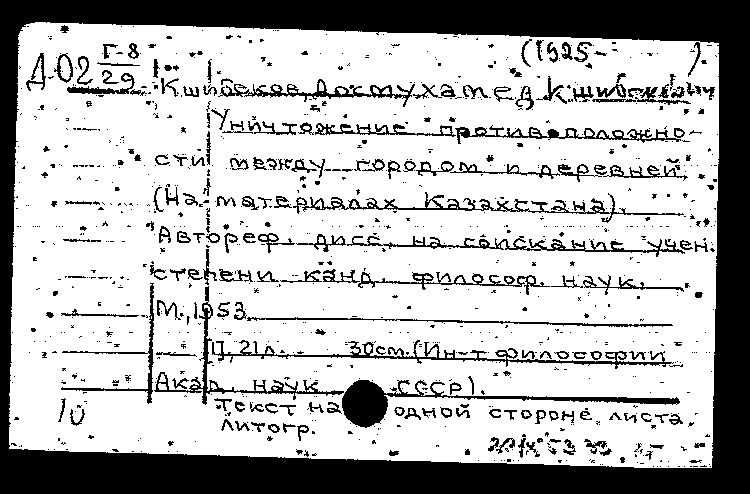 (1925-    )
Д-02 Г-8
29
Кшибеков, Досмухамед Кшибекович
Уничтожение противоположно-
сти между городом и деревней.
(На материалах Казахстана).
Автореф. дисс. на соискание учен.
степени канд. философ. наук.
М., 1953.
[1], 21л. 30см. (Ин-т философии
Акад. наук СССР).
Текст на одной стороне листа.
Литогр.
10